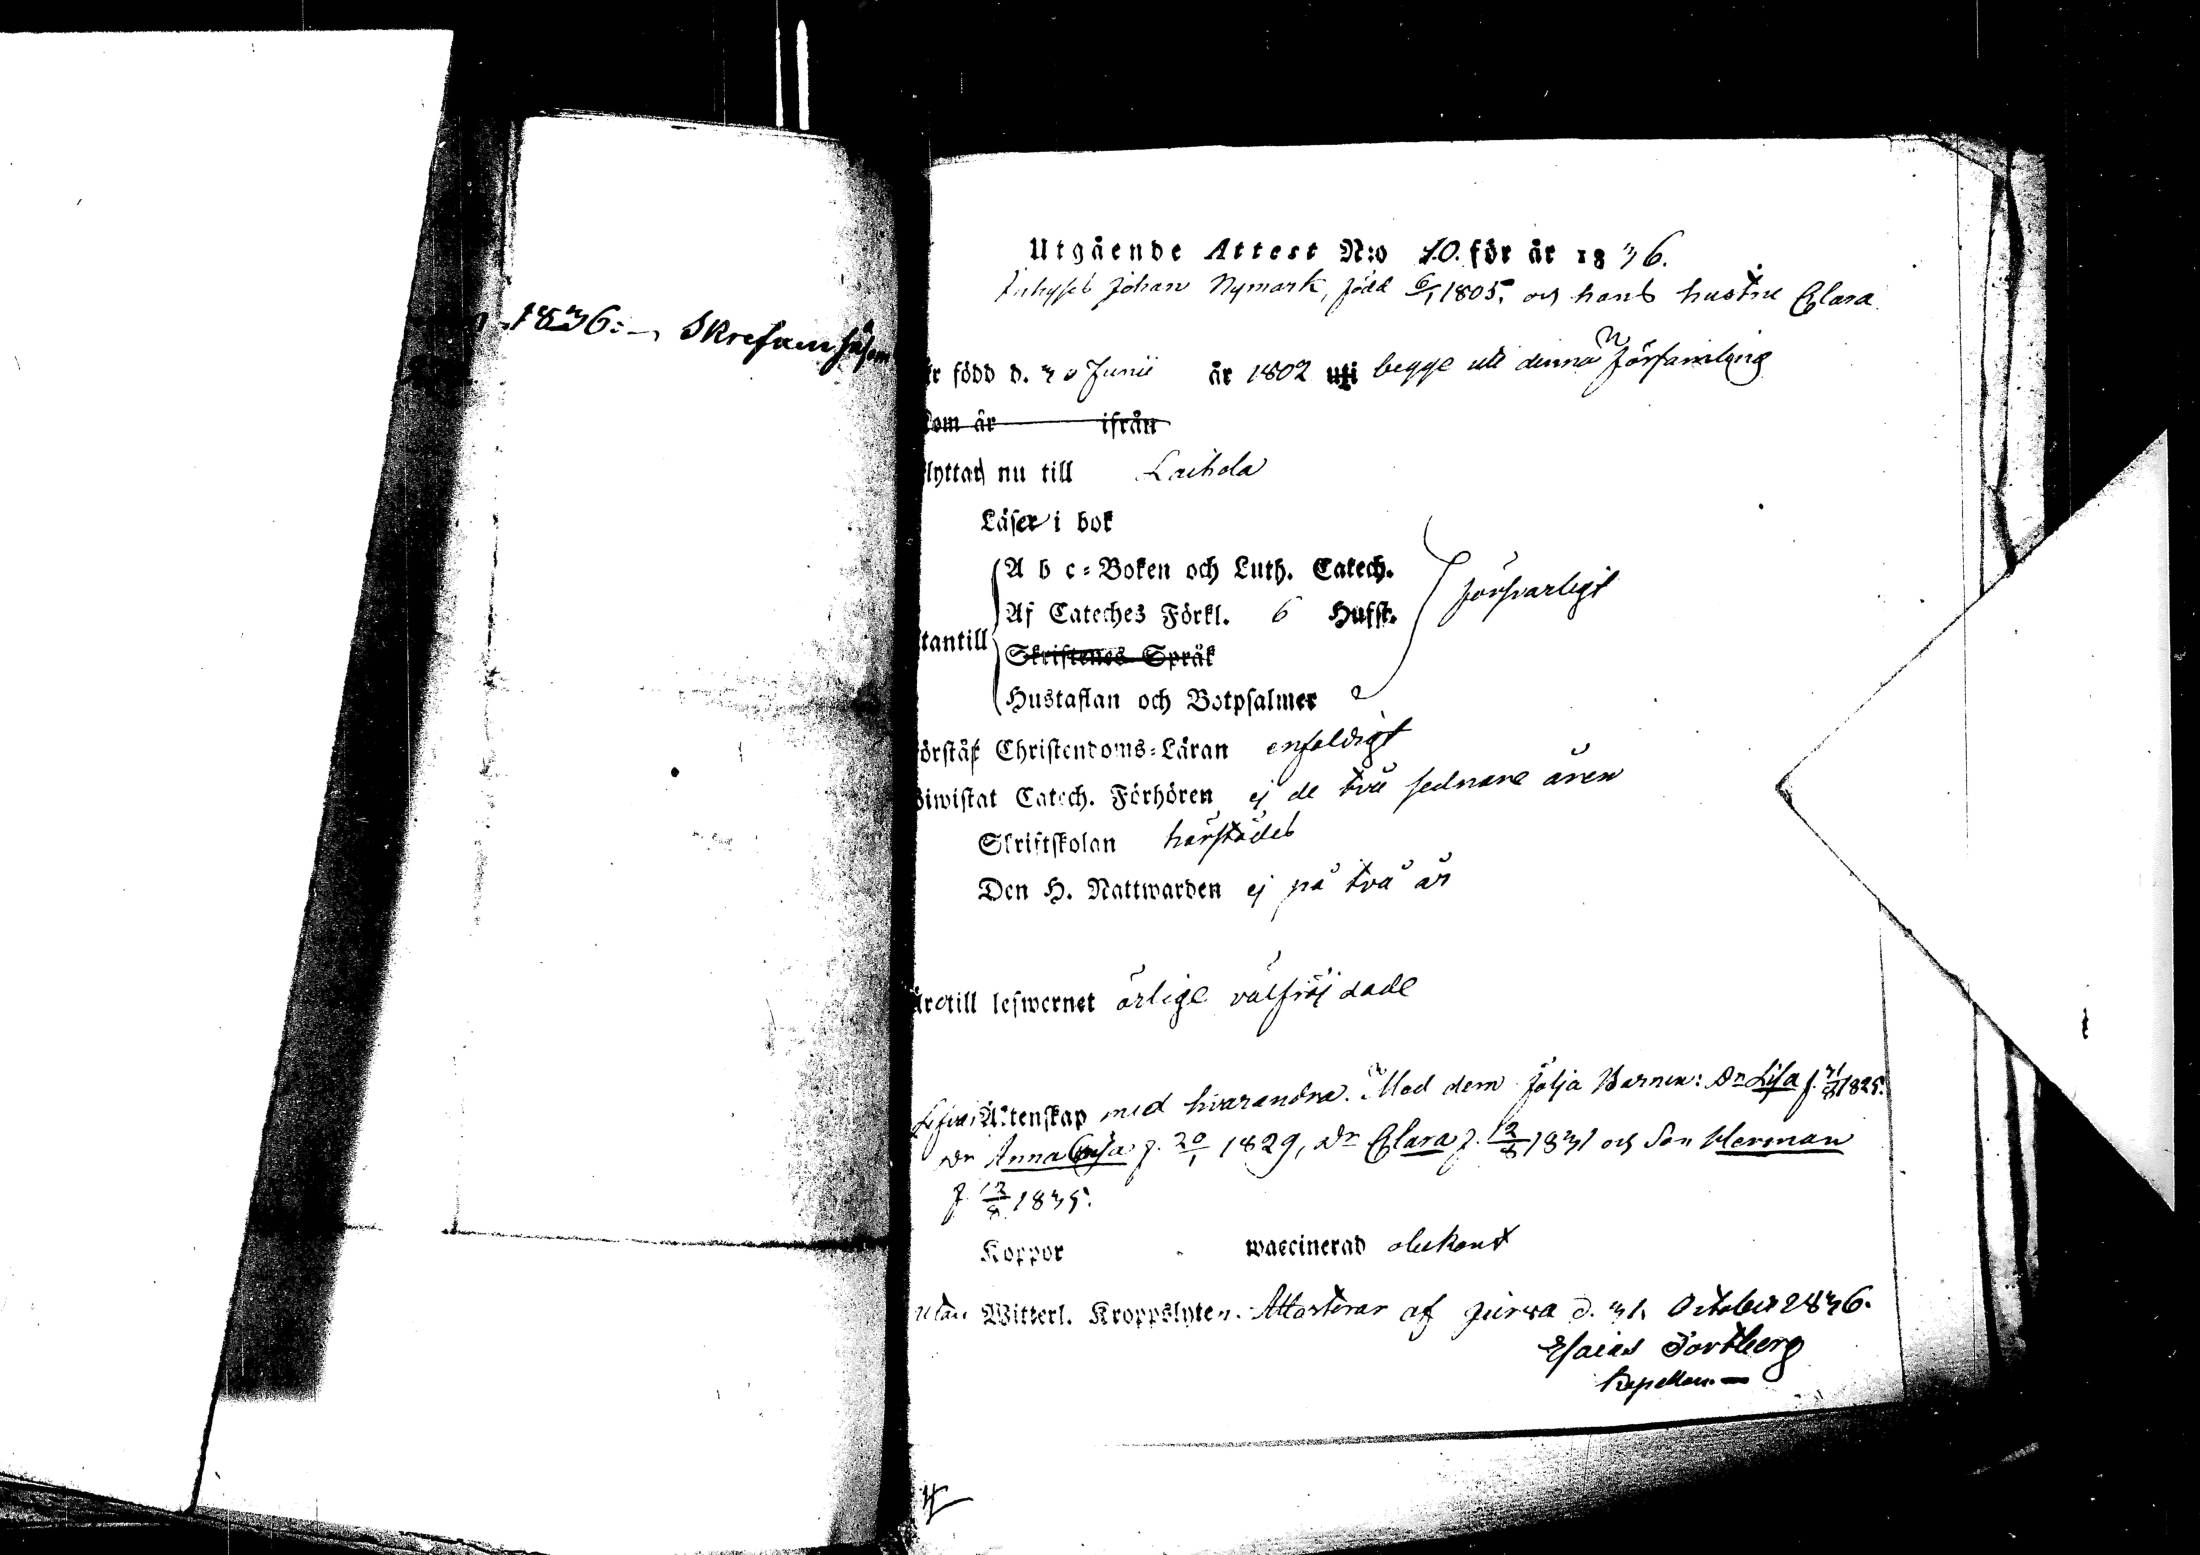 1836:-, Skrefam
Utgående Attest N:o 40. för år 1836.
Inhyses Johan Nymark, född 6/1 1805, och hans hustru Clara
är född d. 30 Junii år 1802 uti begge uti denna Församling
kom år ifrån
flyttar nu till Laihela
Läser i bok
A b c-Boken och Luth. Catech.
Af Cateches Förkl. 6 Hufst. försvarligt
utantill
Skriftenes Språk
Hustaflan och Botpsalmer
Förstår Christendoms-Läran enfaldigt
Biwistat Catech. Förhören ej de två sednare åren
Skriftskolan härstädes
Den H. Nattwarden ej på två år
Äro till lefwernet ärlige välfräjdade
Lefva i Äktenskap med hvarandra. Med dem följa Barnen: Dr Lisa f. 31/8 1825.
Dr Anna Cajsa f. 20/1 1829, Dr Clara f. 12/8 1831 och Son Herman
f. 12/8 1835.
Koppor waccinerad obekant
utan Witterl. Kroppslyten. Attesterar af Jurva d. 31 October 1836.
Esaias Fortberg
Capellan.